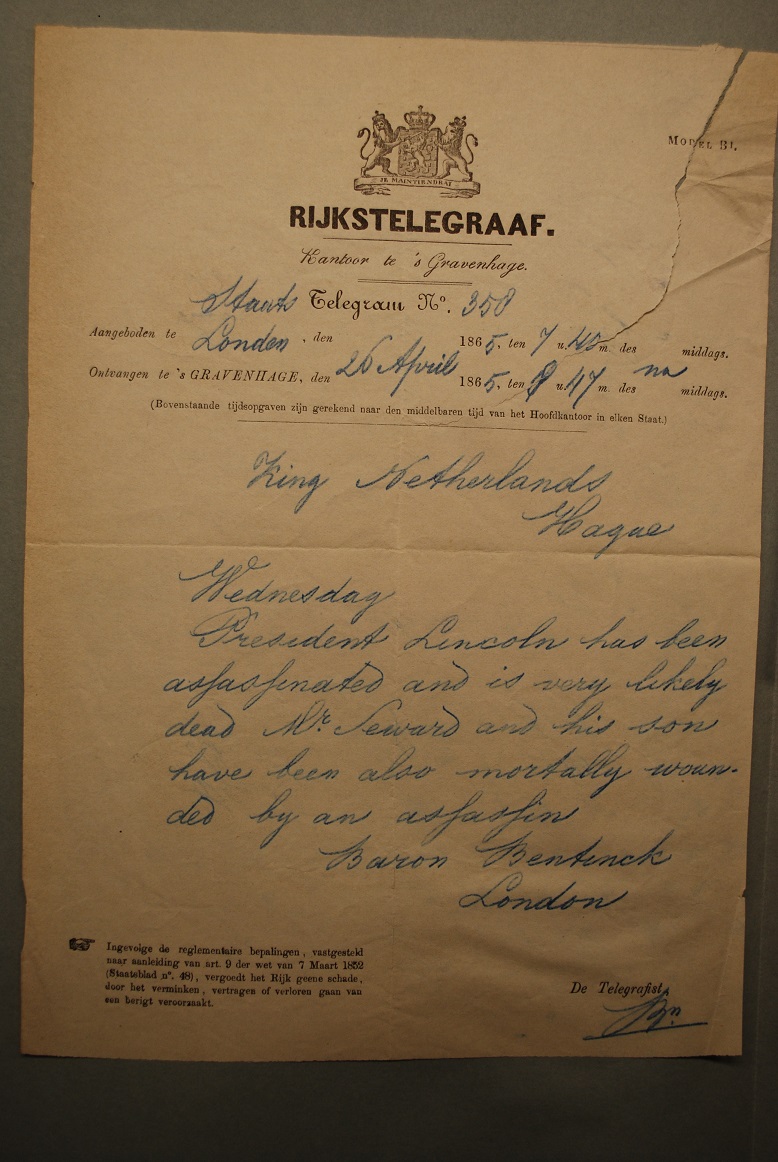 MODEL B1.
JE MAINTIENDRAI
RIJKSTELEGRAAF.
Kantoor te 's Gravenhage.
Staats Telegram No. 358
Aangeboden te Londen, den 1865, ten 7 u. 40 m. des middags.
Ontvangen te 's GRAVENHAGE, den 26 April 1865, ten 8 u. 47 m. des na middags.
(Bovenstaande tijdsopgaven zijn gerekend naar den middelbaren tijd van het Hoofdkantoor in elken Staat.)
King Netherlands
Hague
Wednesday
President Lincoln has been
assassinated and is very likely
dead Mr. Seward and his son
have been also mortally woun-
ded by an assassin
Baron Bentinck
London
Ingevolge de reglementaire bepalingen, vastgesteld
naar aanleiding van art. 9 der wet van 7 Maart 1852
(Staatsblad no. 48), vergoedt het Rijk geene schade,
door het verminken, vertragen of verloren gaan van
een berigt veroorzaakt.
De Telegrafist,